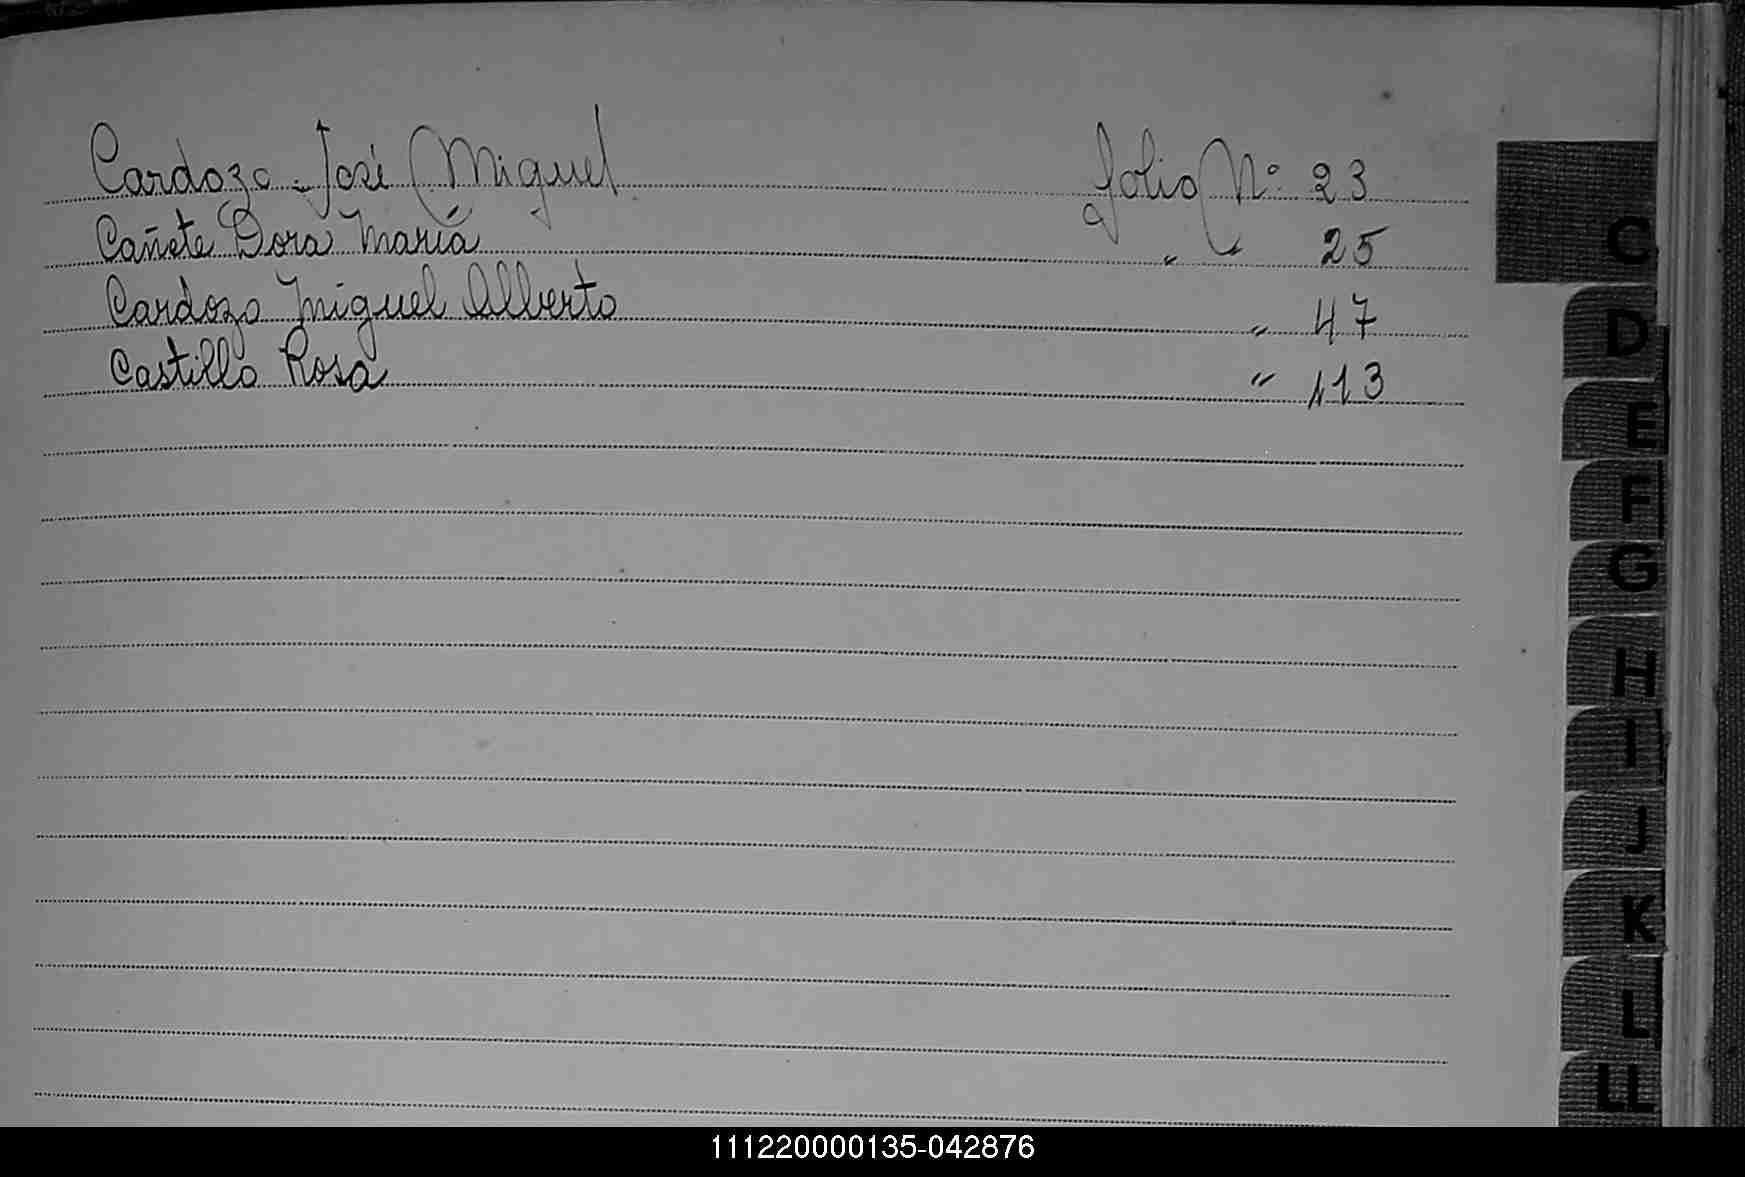 Cardozo - José Miguel folio Nº 23
Cañete Dora María " " 25
Cardozo Miguel Alberto " 47
Castillo Rosa " 113
C
D
E
F
G
H
I
J
K
L
LL
111220000135-042876